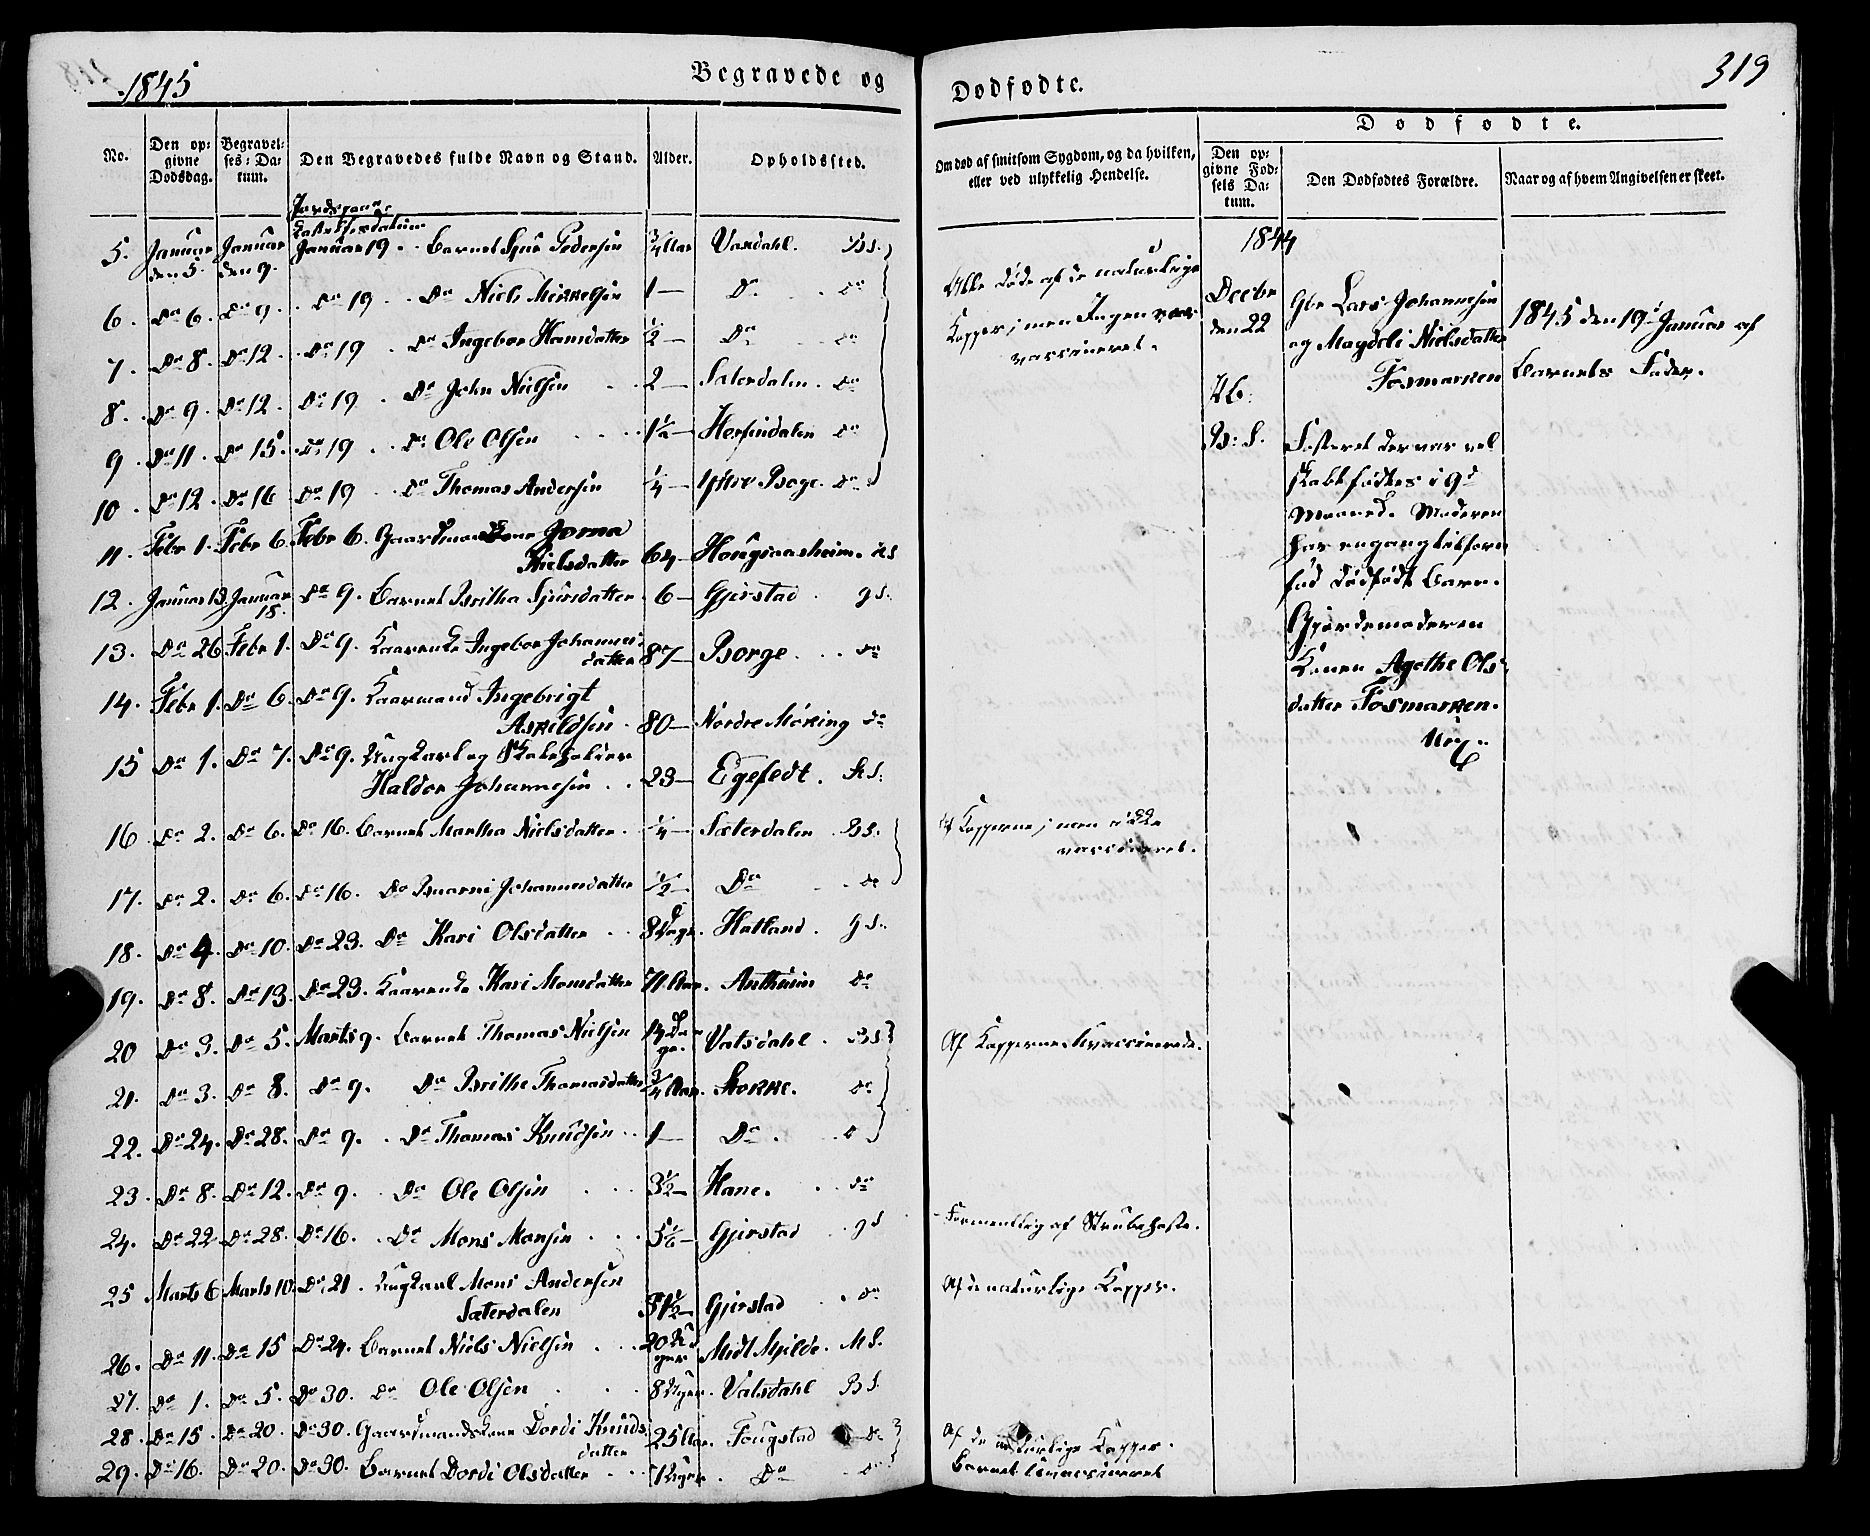 1845
Begravede og
Dødfødte.
319
No.
Den op-
givne
Dødsdag.
Begravel-
ses-Da-
tum.
Den Begravedes fulde Navn og Stand.
Alder.
Opholdssted.
Om død af smitsom Sygdom, og da hvilken,
eller ved ulykkelig Hendelse.
Dødfødte.
Den op-
givne Fød-
sels Da-
tum.
Den Dødfødtes Forældre.
Naar og af hvem Angivelsen er skeet.
5. Januar den 5. Januar den 9. Januar 19. Barnet Sjur Pedersen 3/4 Aar Vasdahl. BS.
6. Do 6. Do 9. Do 19. Do Niels Mikkelsen 1 — Do Do
7. Do 8. Do 12. Do 19. Do Ingebor Hansdatter 1/2 — Do Do
8. Do 9. Do 12. Do 19. Do John Nielsen 2 — Sæterdalen. Do
9. Do 11. Do 15. Do 19. Do Ole Olsen 1 1/2 — Herfindalen Do
10. Do 12. Do 16. Do 19. Do Thomas Andersen 1/4 — Yttre Boge. Do
11. Febr 1. Febr 6. Febr 6. Gaardmandskone Gorna
Nielsdatter 64 — Hougsnæsheim.
12. Januar 13. Januar 18. Do 9. Barnet Britha Sjursdatter 6 — Gjerstad. gS.
13. Do 26. Febr 1. Do 9. Kaarenke Ingebor Johannes-
datter 87 — Borge. Do
14. Febr 1. Do 6. Do 9. Kaarmand Ingebrigt
Askildsen 80 — Nordre Mjøring Do
15 Do 1. Do 7. Do 9. Ungkarl og
Haldor Johannesen 23 — Egefedt.
16 Do 2. Do 6. Do 16. Barnet Martha Nielsdatter 1/4 — Sæterdalen BS.
17. Do 2. Do 6. Do 16. Do Johannesdatter 1/2 — Do Do
18. Do 4. Do 10. Do 23. Do Kari Olsdatter 8 Dage. Hatland. gS.
19. Do 8. Do 13. Do 23. Kaarenke Kari Monsdatter 71 Aar. Do
20 Do 3. Do 5. Marts 9. Barnet Thomas Nielsen 14 Da-
ge. Vatsdahl. BS
21. Do 3. Do 8. Do 9. Do Brithe Thomasdatter 3/4 Aar. Stokke. Do
22. Do 24. Do 28. Do 9. Do Thomas Knudsen 1 — Do. Do
23. Do 8. Do 12. Do 9. Do Ole Olsen 3 1/2 — Hane. Do
24. Do 22. Do 28. Do 16. Do Mons Monsen 5 1/6 — Gjerstad gS
25 Marts 6 Marts 10. Do 21. Ungkarl Mons Andersen
Sæterdalen 31 1/2 — Gjerstad Do
26. Do 11. Do 15 Do 24. Barnet Niels Nielsen 20 U-
ger Midt Mjelde. MS.
27. Do 1. Do 5. Do 30. Do Ole Olsen 8 Uger. Vatsdahl BS.
28. Do 15 Do 20. Do 30. Gaardmandskone Dordi Knuds-
datter 25 Aar. Fougstad Do
29. Do 16. Do 20. Do 30. Barnet Dordi Olsdatter 1 Uger. Do Do
Alle døde af de naturlige
Kopper; men Ingen var
vaccineret.
Af Kopperne; men ikke
vaccineret.
Af Kopperne uvaccinerede.
Formentlig af Strubehoste.
Af de naturlige Kopper.
Af de naturlige Kopper.
Barnet uvaccineret
1844
Decbr
den 22
NB:
B: S.
Gbr Lars Johannesen
og Magdeli Nielsdatter
Fosmarken
Fosteret der var vel
skabt fødtes i 9de
Maaned. Moderen
har engang tilforn
fød dødfødt Barn.
Gjordemoderen
Konen Agethe Ols-
datter Fosmarken.
1845 den 19de Januar af
Barnets Fader.